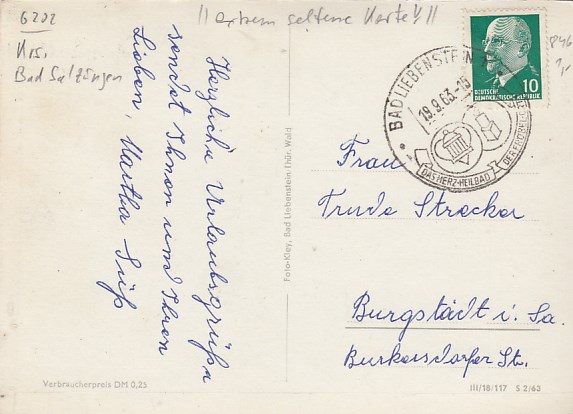 6202
Krs.
Bad Salzungen
!! extrem seltene Karte !!
Herzliche Urlaubsgrüße
sendet Ihnen und Ihren
Lieben, Martha Süß
Foto-Kley, Bad Liebenstein-Thür. Wald
BAD LIEBENSTEIN
19.9.63.-18
DAS HERZ-HEILBAD
DEUTSCHE
DEMOKRATISCHE REPUBLIK
10
846
1,-
Frau
Trude Strecker
Burgstädt i. Sa.
Burkersdorfer St.
Verbraucherpreis DM 0,25
III/18/117 S 2/63